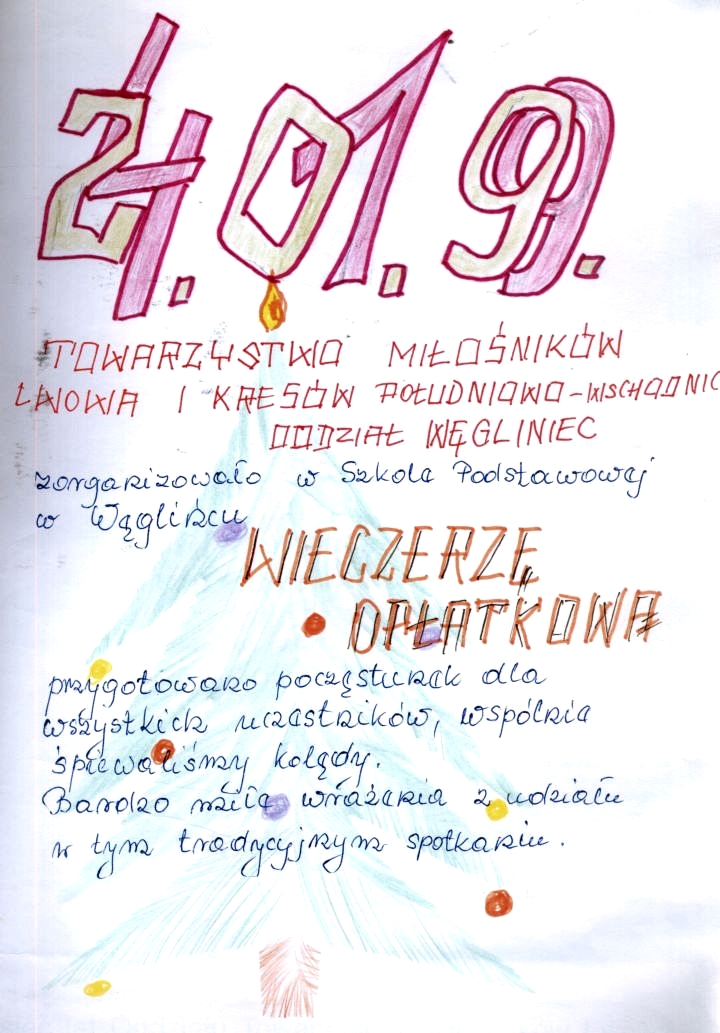 24.01.99.
TOWARZYSTWO MIŁOŚNIKÓW
LWOWA I KRESÓW POŁUDNIOWO-WSCHODNIC
ODDZIAŁ WĘGLINIEC
zorganizowało w Szkole Podstawowej
w Węglińcu
WIECZERZĘ
OPŁATKOWĄ
przygotowano poczęstunek dla
wszystkich uczestników, wspólnie
śpiewaliśmy kolędy.
Bardzo miłe wrażenia z udziału
w tym tradycyjnym spotkaniu.